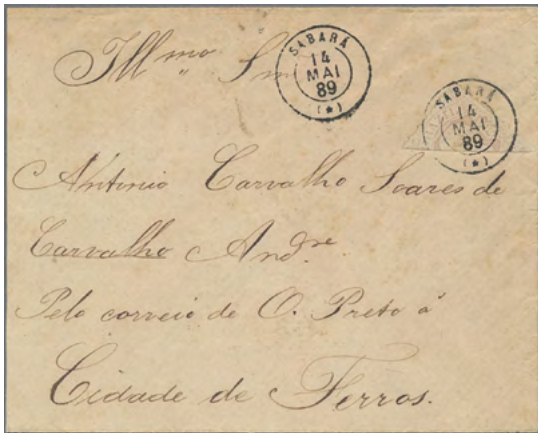 Ill.mo Snr
SABARÁ
14
MAI
89
(*)
SABARÁ
14
MAI
89
(*)
Antonio Carvalho Soares de
Carvalho Andre.
Pelo correio de O. Preto á
Cidade de Ferros.